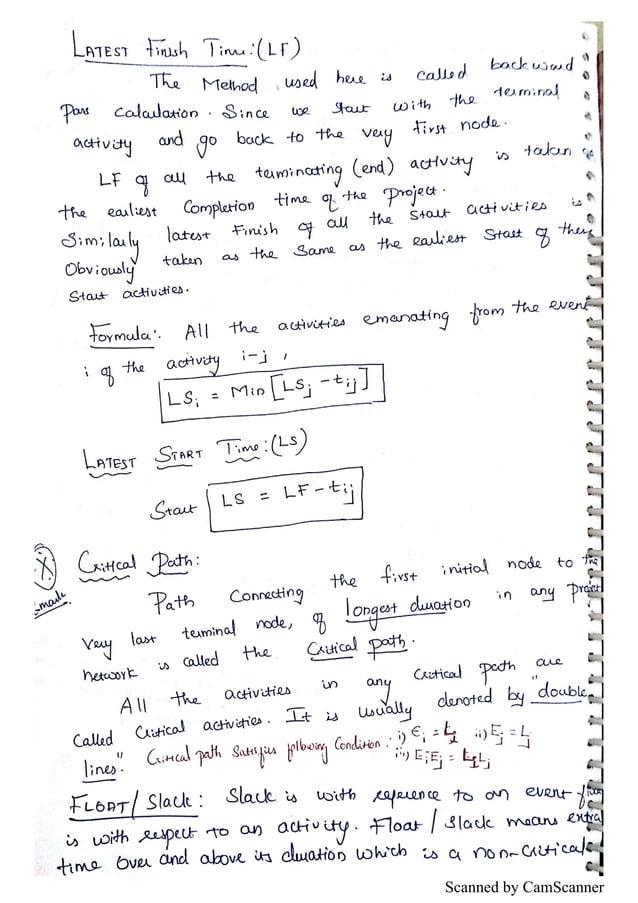 LATEST Finish Time:(LF)
The Method used here is called backward
Pass Calculation. Since we start with the terminal
activity and go back to the very first node.
LF of all the terminating (end) activity is taken as
the earliest Completion time of the Project.
Similarly latest Finish of all the Start activities is
Obviously taken as the Same as the earliest Start of these
Start activities.
Formula: All the activities emanating from the event
i of the activity i-j,
LSi = Min [LSj - tij]
LATEST START Time:(LS)
Start LS = LF - tij
Critical Path:
Path Connecting the first initial node to the
-mark.
Very last terminal node, of longest duration in any Project
network is called the Critical path.
All the activities in any Critical path are
Called Critical activities. It is usually denoted by "double
lines." Critical path Satisfies following Condition: i) Ei = Li ii) Ej = Lj
iii) Ei-Ej = Li-Lj
FLOAT/Slack: Slack is with reference to an event
is with respect to an activity. Float/Slack means extra
time Over and above its duration which is a non-Critical
Scanned by CamScanner